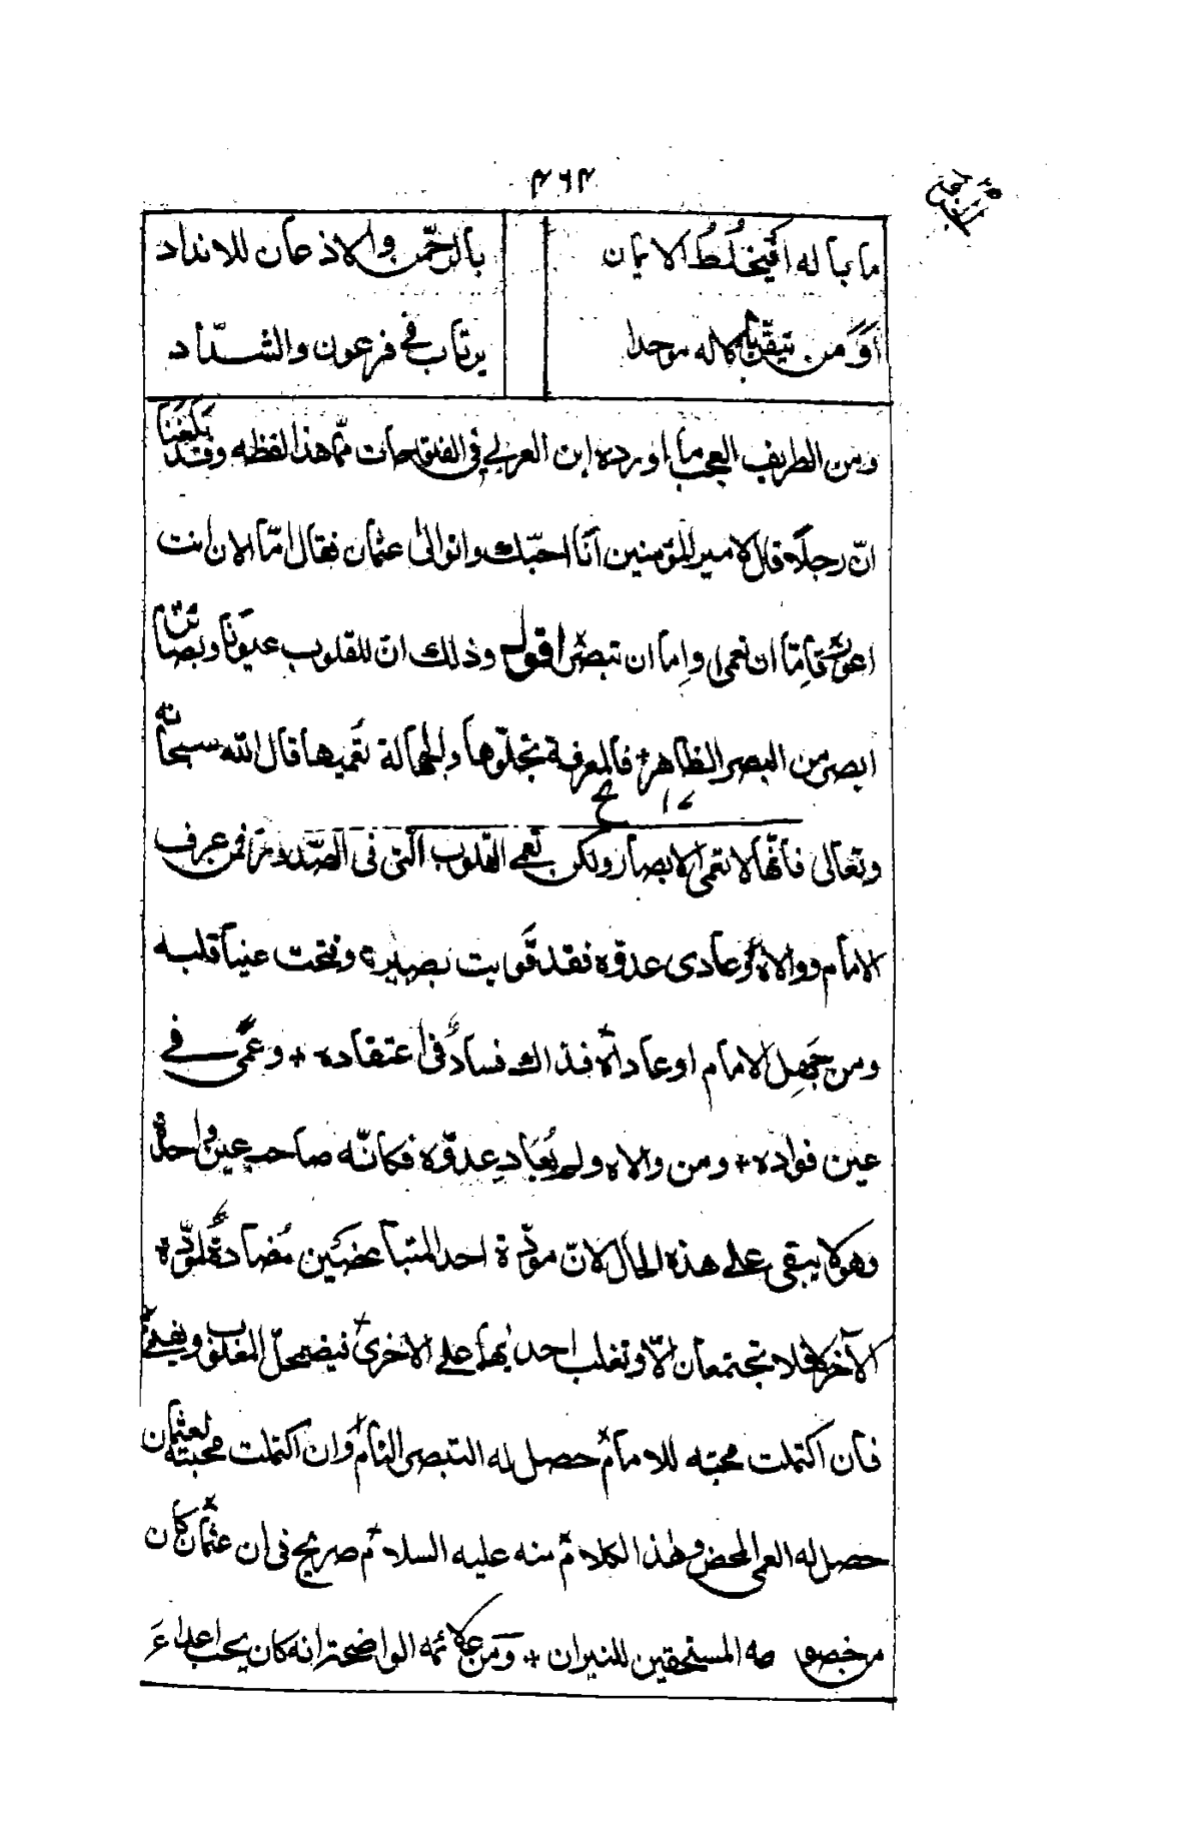 ٤٦٤
ما باله أفيخلُطُ الايمان بالرحّمن والاذعان للانداد
أوَمن تيقّن باله موحدا يرتاب في فرعون والشدّاد
ومن الطريف العجب ما اورده ابن العربي في الفتوحات ممّا هذا لفظه وقد بَلَغَنا
انّ رجلاً قال لامير المؤمنين أنَا احبّك واتوالىٰ عثمان فقال امّا الان انت
اعور فإمّا ان تعمى وإما ان تبصر اقول وذلك انّ للقلوب عيونًا وبصائر
ابصر من البصر الظاهر + فالمعرفة تجلّوها والجهالة تُعميها قال الله سبحانه
١٧ ع
وتعالى فانّها لا تعمى الابصار ولكن تعمى القلوب الّتي في الصّدور فمن عرف
الامام ووالاه وعادى عدوّه فقد قَويت بصيرته وفتحت عينا قلبه
ومن جَهِل الامام او عاداه فذاك فسادٌ في اعتقاده + وعمًى في
عين فواده + ومن والاه ولم يُعَادِ عدوّه فكانّه صاحب عين واحدة
وهو لا يبقى على هذه الحال لانّ مودّة احد المتباغضَين مُضادةٌ لمودّة
الآخر فلا تجتمعان الّا وتغلب احديهما على الاخرى فيضمحلّ المغلوب ويفنى
فان اكتملت محبته للامام حصل له التبصر التام وَان اكتملت محبته لعثمان
حصل له العمى المحض وهذا الكلام منه عليه السلام صريح في ان عثمان كان
من خصومه المستحقين للنيران + وَمن علائمه الواضحة انه كان يحب اعداءَ